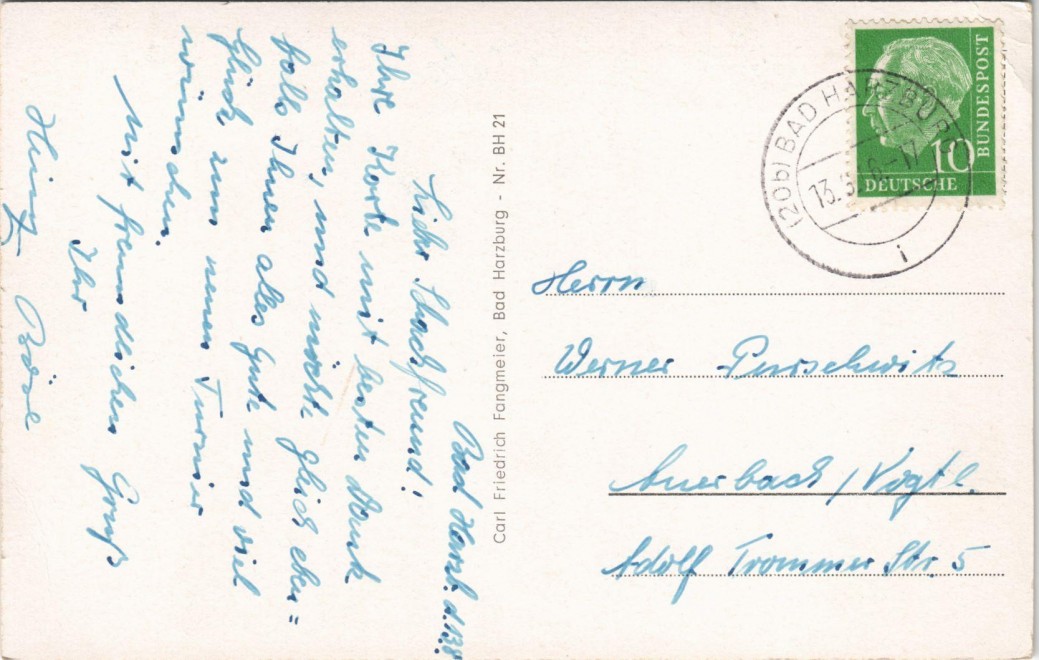 Bad Harzb. d. 13.8.
Lieber Schachfreund!
Ihre Karte mit besten Dank
erhalten, und möcht gleich eben=
falls Ihnen alles Gute und viel
Glück zum neuen Turnier
wünschen.
Mit freundlichen Gruß
Ihr
Heinz Böse
Carl Friedrich Fangmeier, Bad Harzburg - Nr. BH 21
(20b) BAD HARZBURG
13.
-17
i
10
DEUTSCHE
BUNDESPOST
Herrn
Werner Purschwitz
Auerbach/Vogtl.
Adolf Trommer Str. 5